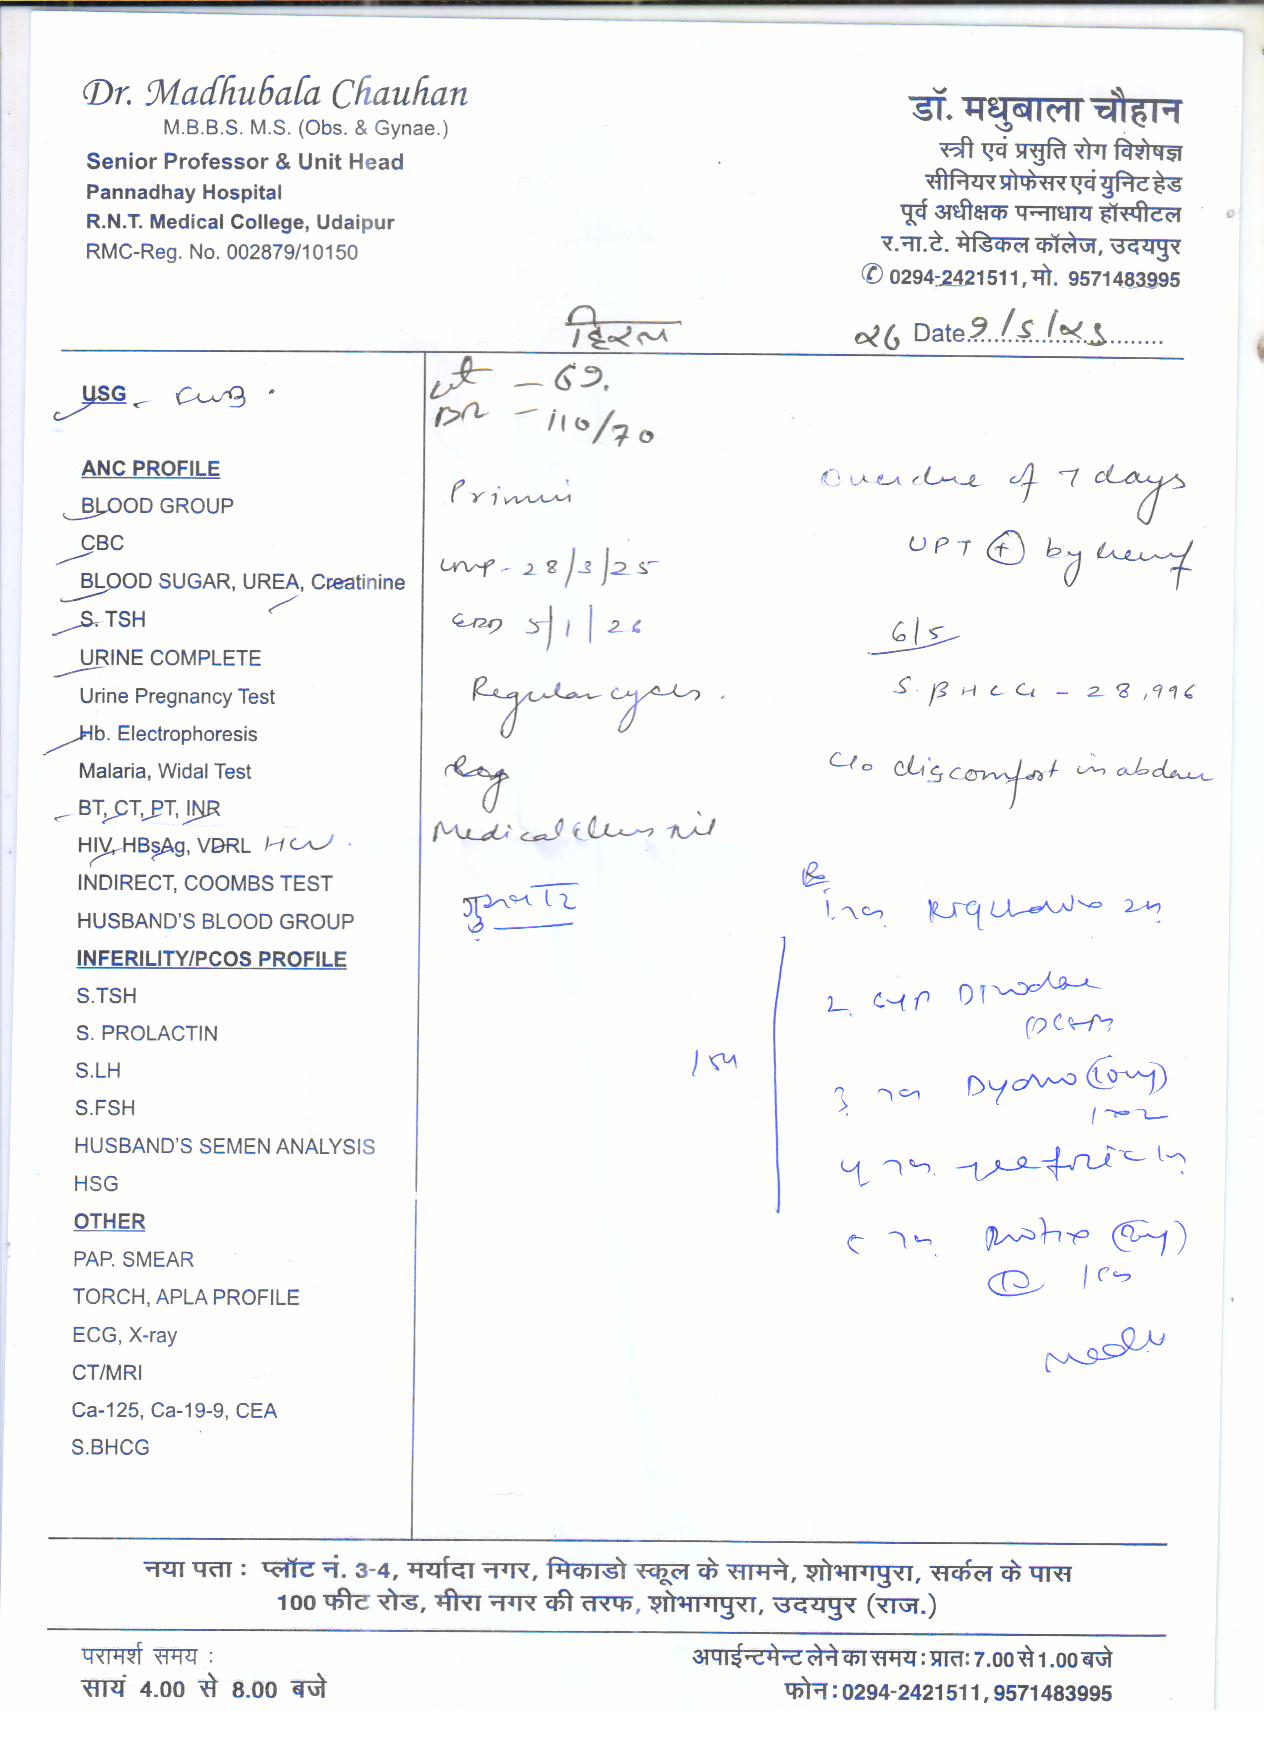 Dr. Madhubala Chauhan
M.B.B.S. M.S. (Obs. & Gynae.)
Senior Professor & Unit Head
Pannadhay Hospital
R.N.T. Medical College, Udaipur
RMC-Reg. No. 002879/10150
डॉ. मधुबाला चौहान
स्त्री एवं प्रसुति रोग विशेषज्ञ
सीनियर प्रोफेसर एवं युनिट हेड
पूर्व अधीक्षक पन्नाधाय हॉस्पीटल
र.ना.टे. मेडिकल कॉलेज, उदयपुर
✆ 0294-2421511, मो. 9571483995
Date
USG
ANC PROFILE
BLOOD GROUP
CBC
BLOOD SUGAR, UREA, Creatinine
S. TSH
URINE COMPLETE
Urine Pregnancy Test
Hb. Electrophoresis
Malaria, Widal Test
BT, CT, PT, INR
HIV, HBsAg, VDRL HCV
INDIRECT, COOMBS TEST
HUSBAND'S BLOOD GROUP
INFERILITY/PCOS PROFILE
S.TSH
S. PROLACTIN
S.LH
S.FSH
HUSBAND'S SEMEN ANALYSIS
HSG
OTHER
PAP. SMEAR
TORCH, APLA PROFILE
ECG, X-ray
CT/MRI
Ca-125, Ca-19-9, CEA
S.BHCG
wt - 69.
BP - 110/70
Primi
LMP - 28/3/25
EDD 5/1/26
Regular cycles.
Medical illness nil
Overdue of 7 days
UPT + by herself
6/5
S. BHCG - 28,996
C/o discomfort in
नया पता : प्लॉट नं. 3-4, मर्यादा नगर, मिकाडो स्कूल के सामने, शोभागपुरा, सर्कल के पास
100 फीट रोड, मीरा नगर की तरफ, शोभागपुरा, उदयपुर (राज.)
परामर्श समय :
सायं 4.00 से 8.00 बजे
अपाईन्टमेन्ट लेने का समय : प्रातः 7.00 से 1.00 बजे
फोन : 0294-2421511, 9571483995